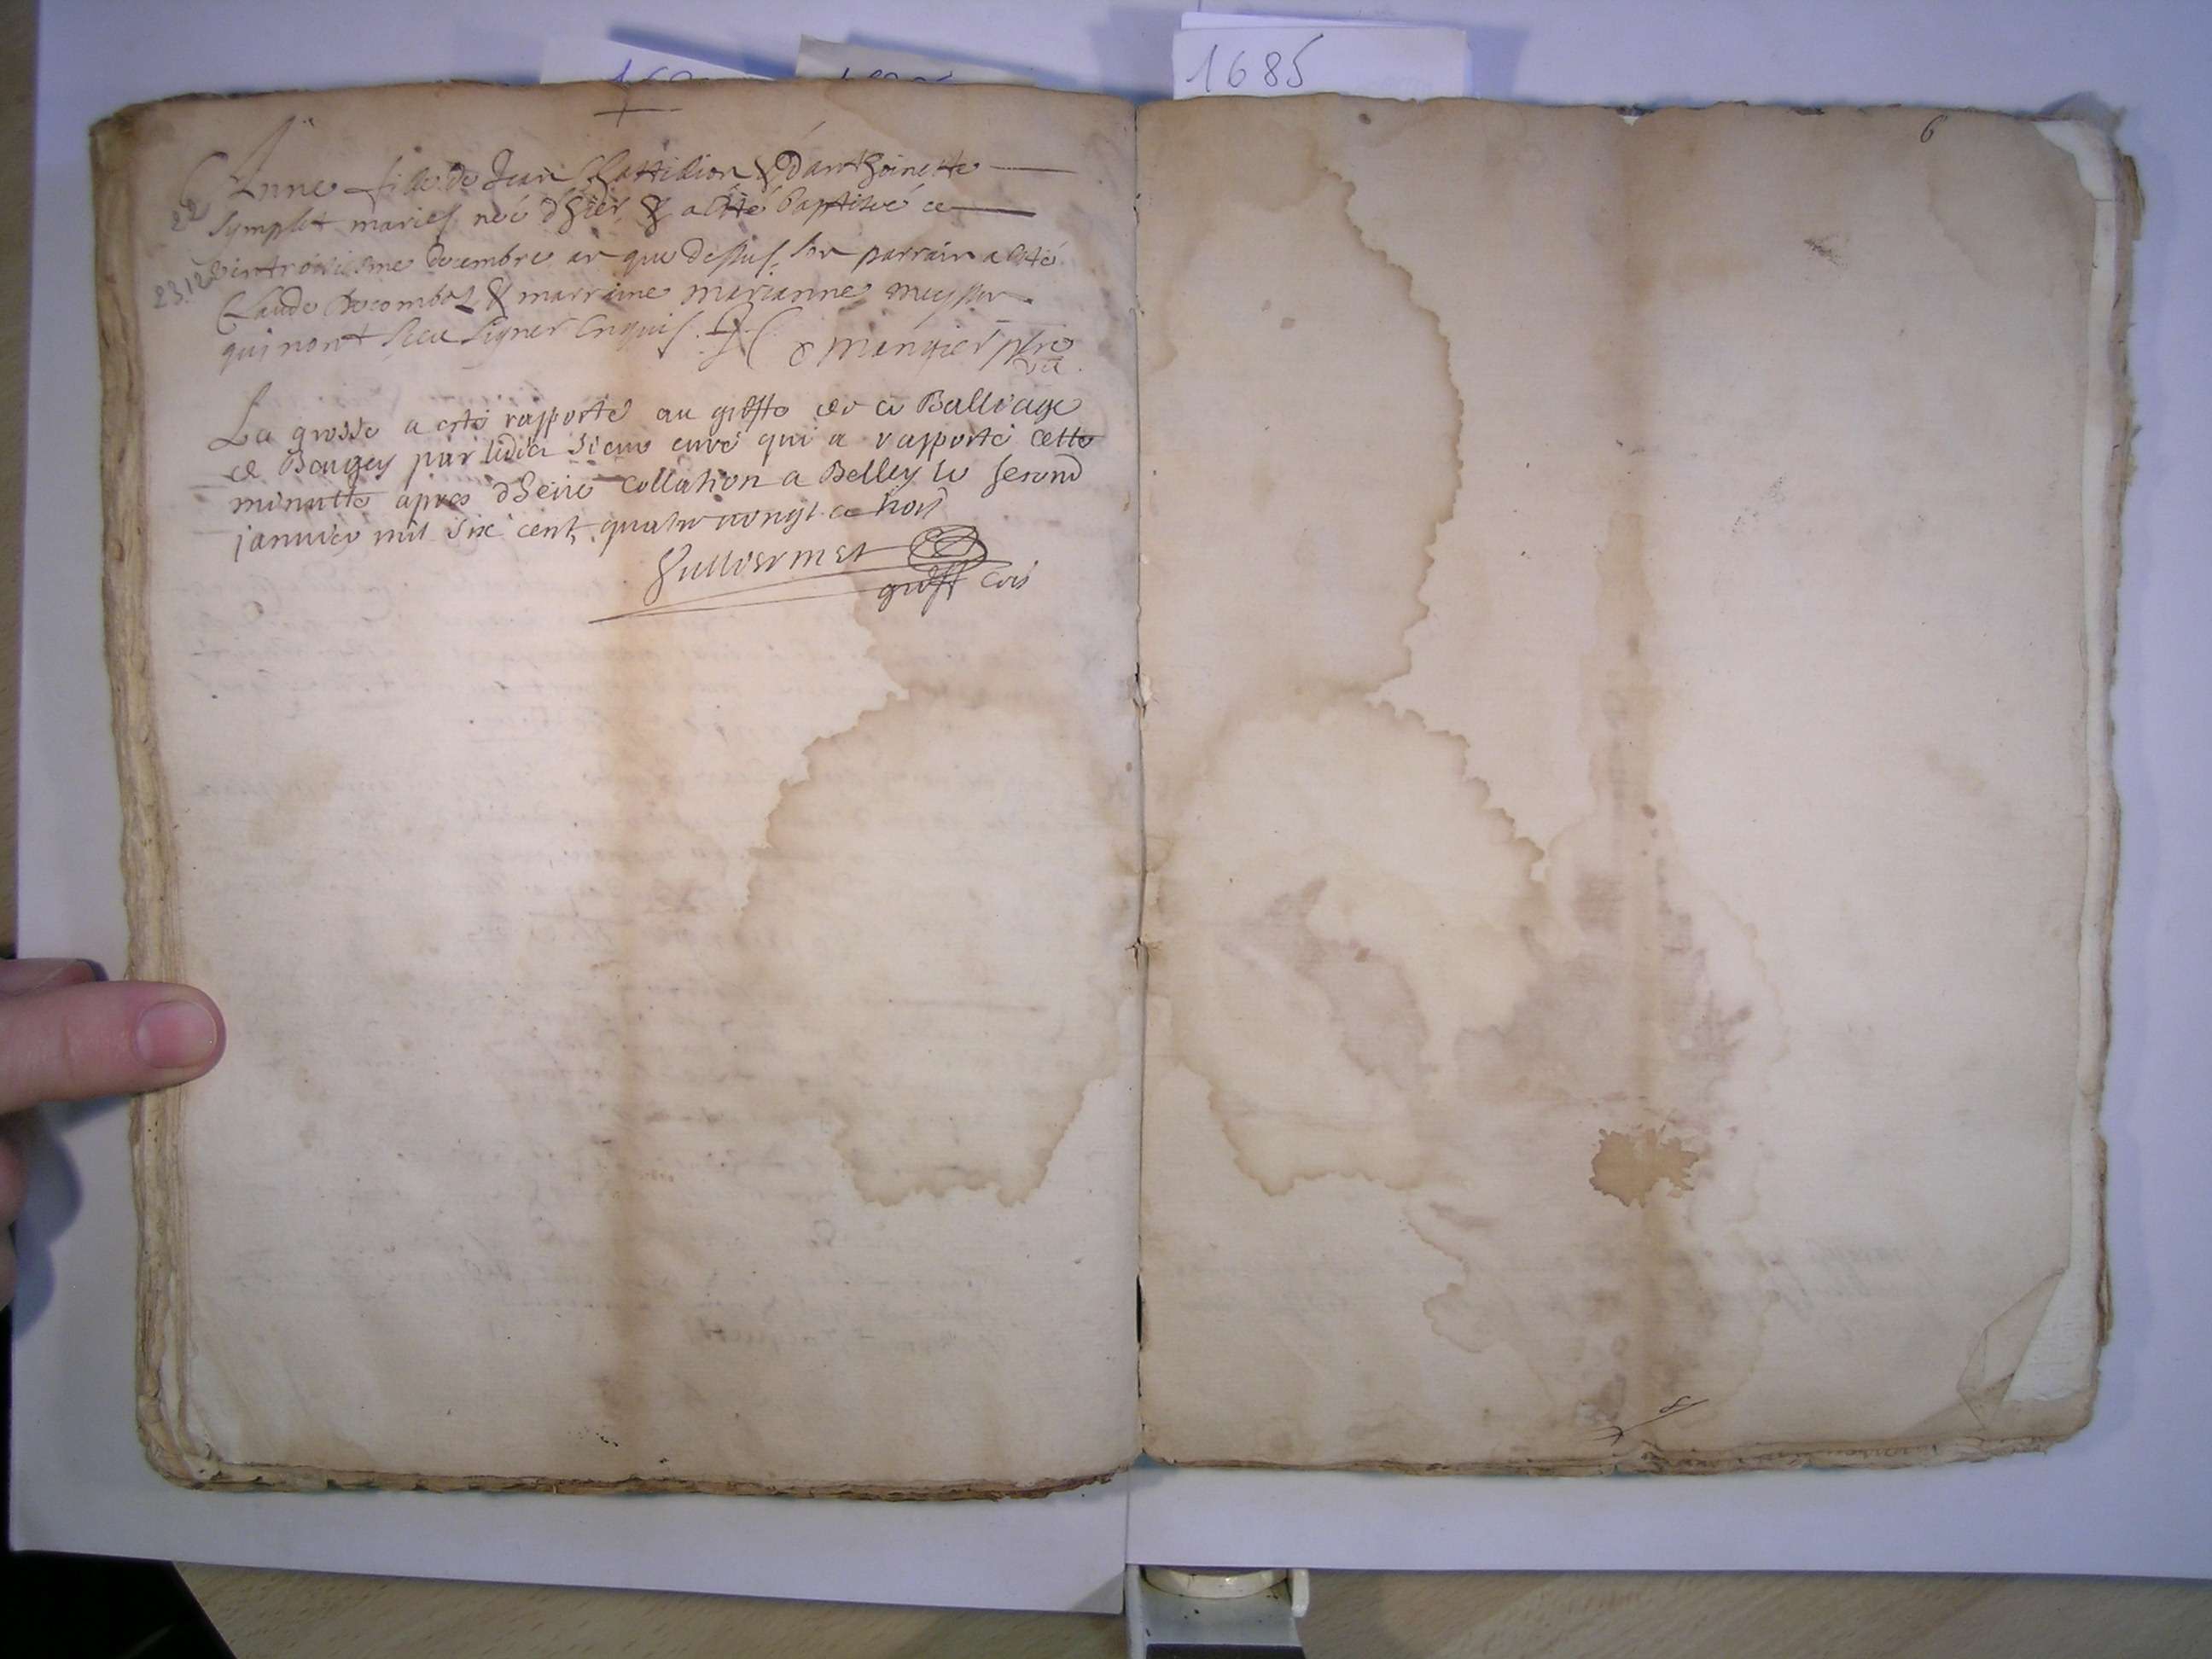 1685
6
Anne fille de Jean Chattillion & danthoinette
Symplet mariés née dhier & a esté baptisée ce
vintroisiesme decembre an que dessus, son parrain a esté
Claude Decombaz & marraine marianne
qui nont sceu signer enquis.
Mongier ptre
La grosse a esté rapporté au greffe de ce Balliage
de Bougey par ledict sieur curé qui a rapporté cette
minutte apres dheue collation a Belley le second
janvier mil six cent quatre vingt et trois
Gulliermet
greff cois
22
23.12